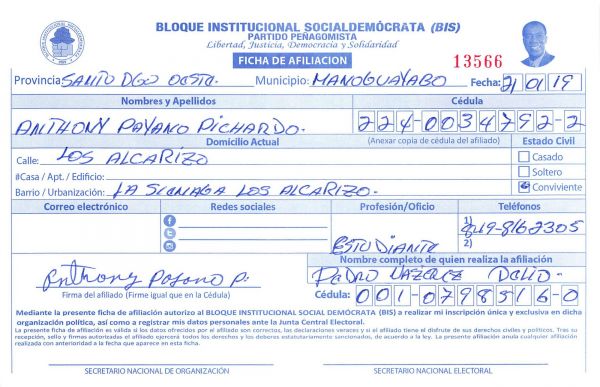 BLOQUE INSTITUCIONAL SOCIALDEMÓCRATA (BIS)
PARTIDO PEÑAGOMISTA
Libertad, Justicia, Democracia y Solidaridad
FICHA DE AFILIACION
13566
Provincia: SANTO DGO OESTE. Municipio: MANOGUAYABO Fecha: 21/01/19
Nombres y Apellidos Cédula
ANTHONY PAYANO PICHARDO. 224-0034792-2
Domicilio Actual (Anexar copia de cédula del afiliado) Estado Civil
Calle: LOS ALCARIZO Casado
#Casa / Apt. / Edificio: Soltero
Barrio / Urbanización: LA SIENAGA LOS ALCARIZO. Conviviente
Correo electrónico Redes sociales Profesión/Oficio Teléfonos
1) 849-8162305
ESTUDIANTE 2)
Nombre completo de quien realiza la afiliación
Anthony Payano P. PEDRO VAZQUEZ DELIO.
Firma del afiliado (Firme igual que en la Cédula) Cédula: 001-0798316-0
Mediante la presente ficha de afiliación autorizo al BLOQUE INSTITUCIONAL SOCIAL DEMÓCRATA (BIS) a realizar mi inscripción única y exclusiva en dicha
organización política, así como a registrar mis datos personales ante la Junta Central Electoral.
La presente ficha de afiliación es válida si los datos ofrecidos por el afiliado son correctos, las declaraciones veraces y si el afiliado tiene el disfrute de sus derechos civiles y políticos. Tras su
recepción, sello y firmas autorizadas el afiliado ejercerá todos los derechos y los deberes estatutariamente sancionados, de acuerdo a la ley. La presente afiliación anula cualquier afiliación
realizada con anterioridad a la fecha que aparece en esta ficha.
SECRETARIO NACIONAL DE ORGANIZACIÓN SECRETARIO NACIONAL ELECTORAL